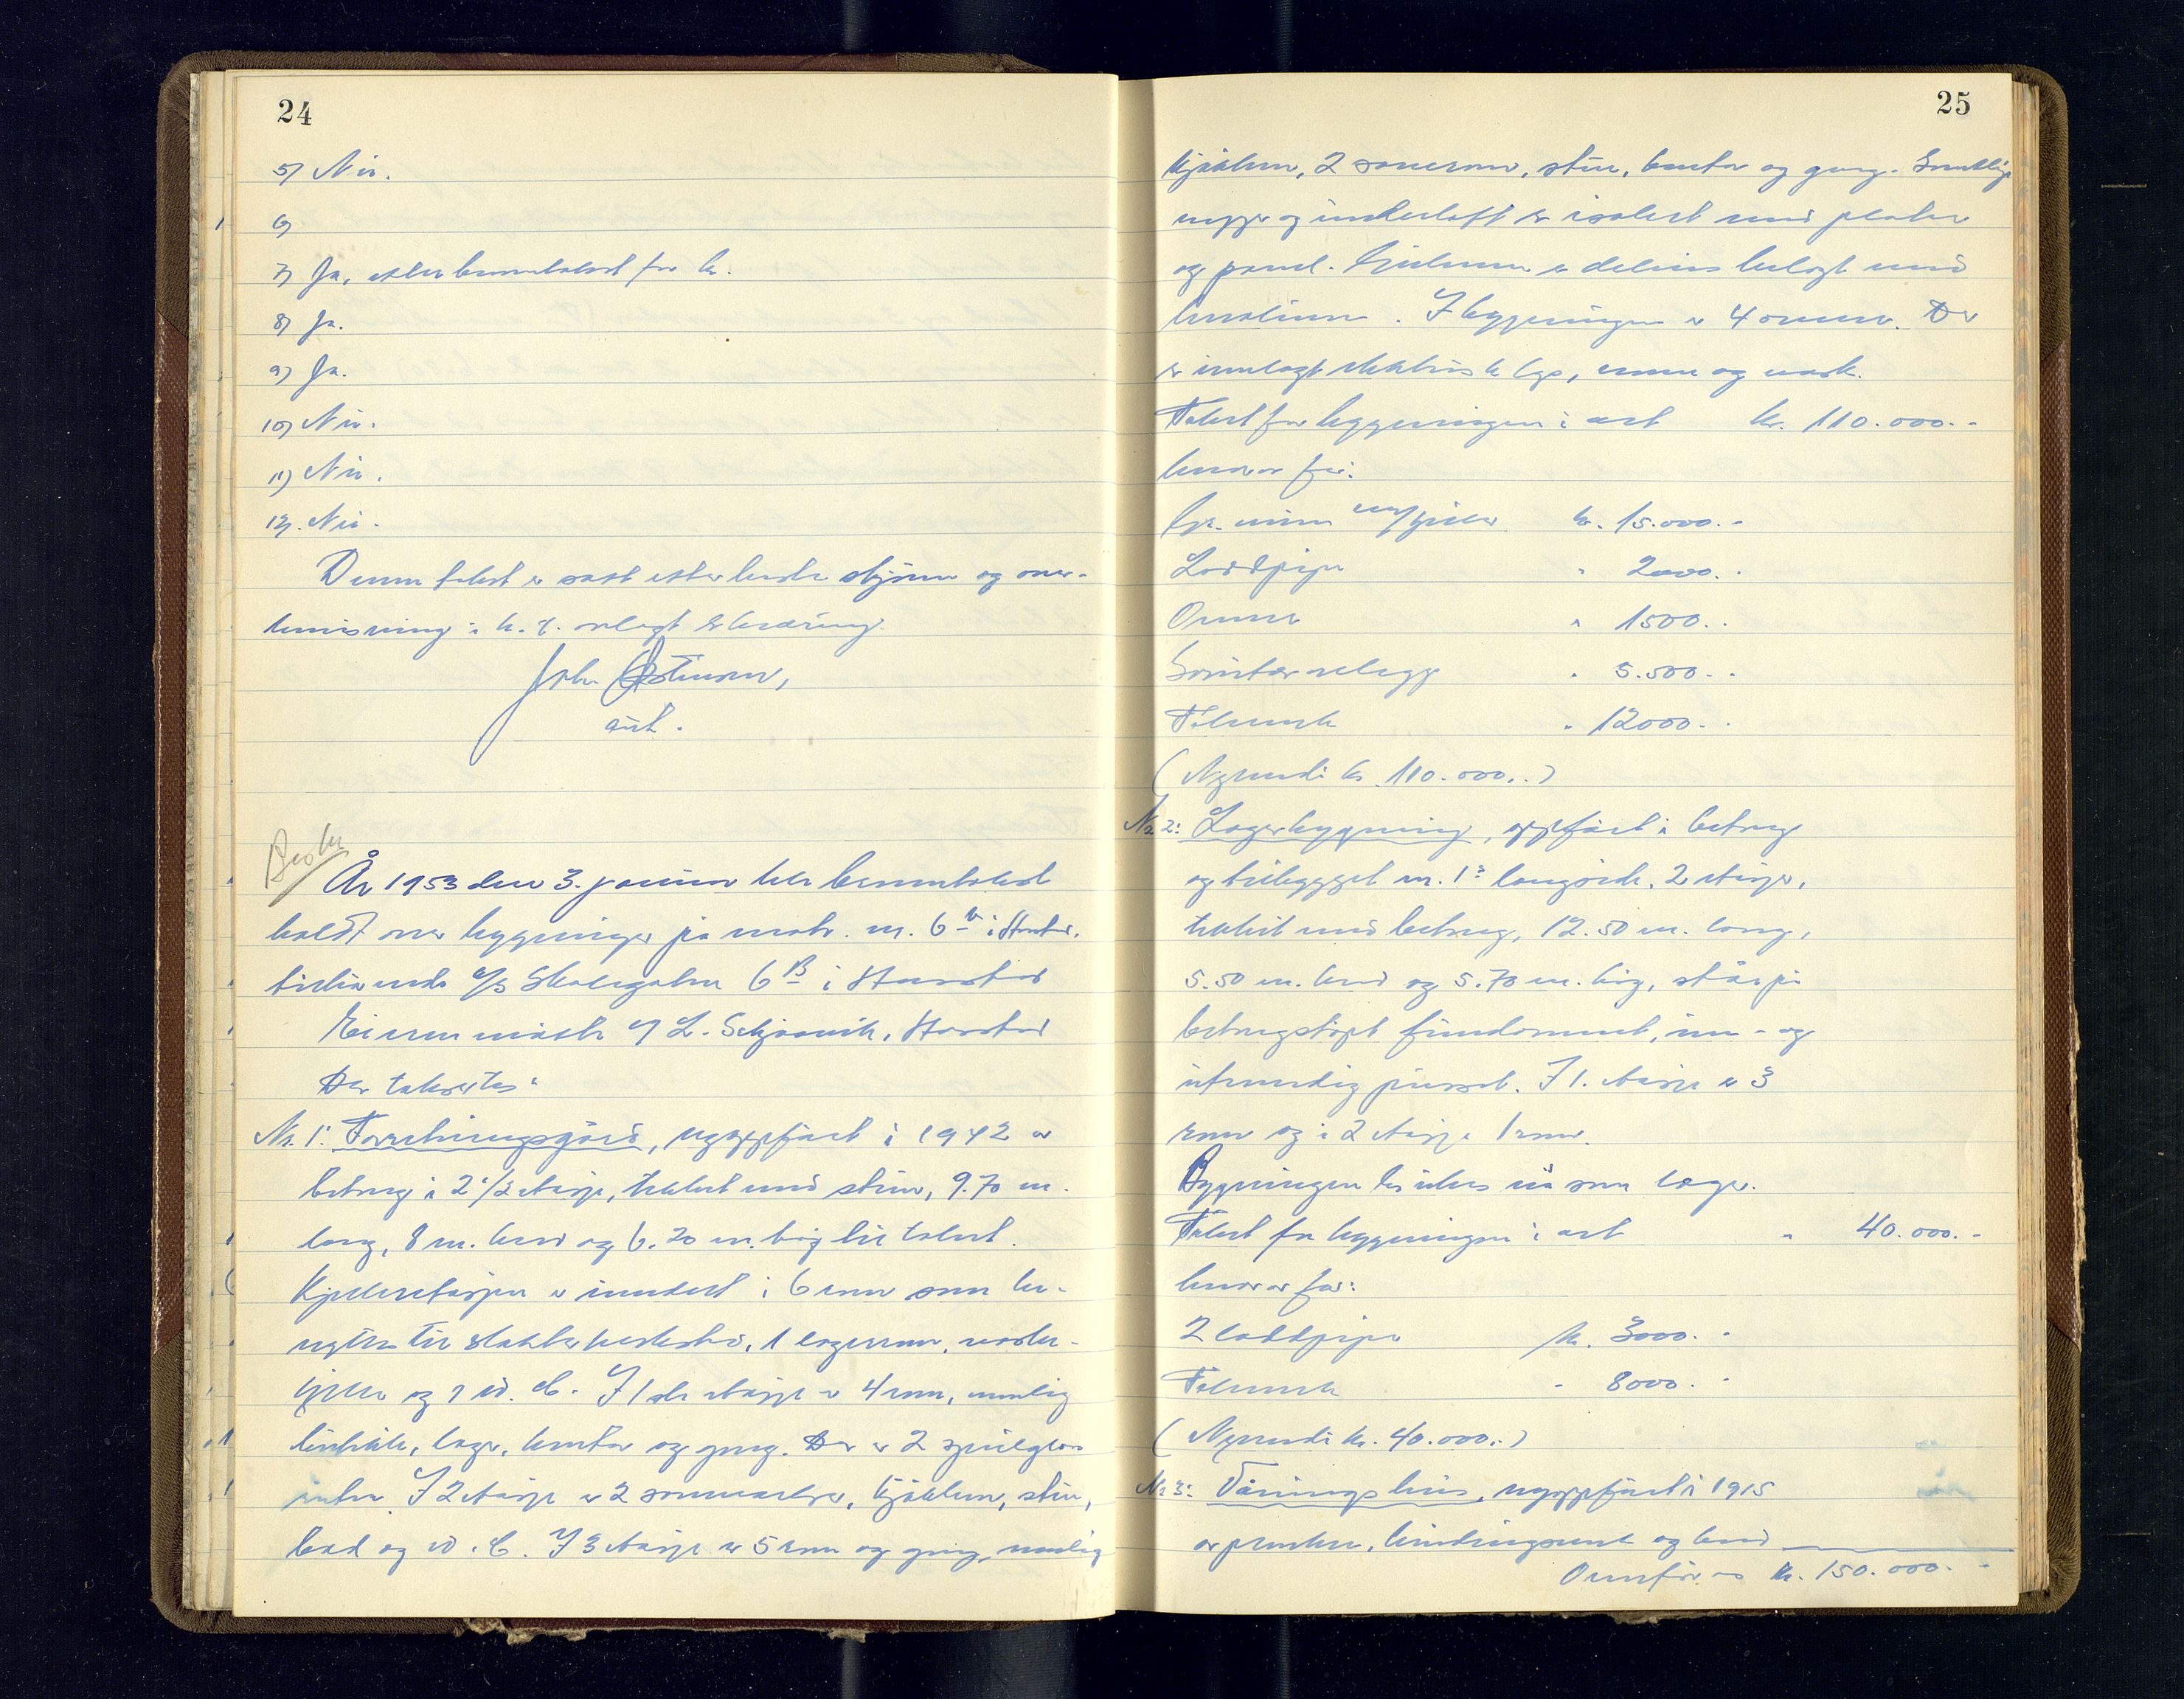 24
5) Nei.
6)
7) Ja, etter branntakst før kr.
8) Ja.
9) Ja.
10) Nei.
11) Nei.
12. Nei.
Denne takst er satt etter beste skjønn og over-
bevisning i h.t. avlagt forsikring.
John
aut.
År 1953 den 3. januar ble branntakst
holdt over bygninger på matr. nr. 6 b i Harstad
tilhørende A/S Skolegaten 6 B i Harstad
Eieren møtte v/ L. Schjoavik, Harstad
Der takseres:
Nr. 1: Forretningsgård, nyoppført i 1942 av
betong i 2 1/2 etasje, tekket med skiver, 9.70 m.
lang, 8 m. bred og 6.20 m. høg til takut.
Kjelleretasjen er innredet i 6 rom som be-
nyttes til slakteverksted, 1 lagerrom, vaske-
kjeller og 1 W.C. I 1ste etasje er 4 rom, nemlig
butikk, lager, kontor og gang. Der er 2 speilglass
ruter. I 2 etasje er 2 soveværelser, kjøkken, stue,
bad og W.C. I 3 etasje er 5 rom og gang, nemlig
25
kjøkken, 2 soverom, stue, kontor og gang. Samtlige
vegger og underloft er isolert med plater
og panel. Gulvene er delvis belagt med
linoleum. I bygningen er 4 ovner. Der
er innlagt elektrisk lys, varme og vask.
Takst for bygningen i alt kr. 110.000.-
hvorav for:
Gr. mur m/kjeller kr. 15.000.-
Loddpipe " 2000.-
Ovner " 1500.-
Sanitæranlegg " 5.500.-
Tølverk " 12000.-
(Nyverdi kr. 110.000.-)
Nr. 2: Lagerbygning, oppført i betong
og tilbygget nr. 1's langside. 2 etasjer,
tekket med betong, 12.50 m. lang,
5.50 m. bred og 5.70 m. høg, står på
betongstøpt fundament, inn- og
utvendig pusset. I 1. etasje er 3
rom og i 2 etasje 1 rom.
Bygningen brukes nå som lager.
Takst for bygningen i alt " 40.000.-
hvorav for:
2 loddpiper kr. 3000.-
Tølverk " 8000.-
(Nyverdi kr. 40.000.-)
Nr. 3: Våningshus, nyoppført i 1915
av planker, bindingsverk og bord
Overføres kr. 150.000.-